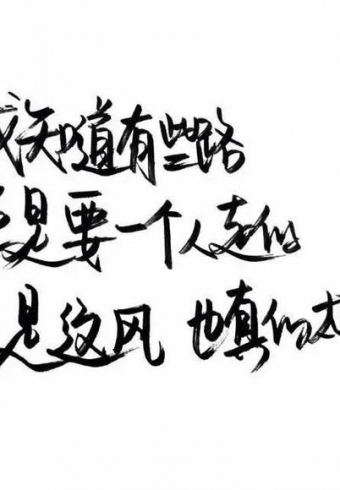 我知道有些路
是要一个人走的
是这风 也真的太